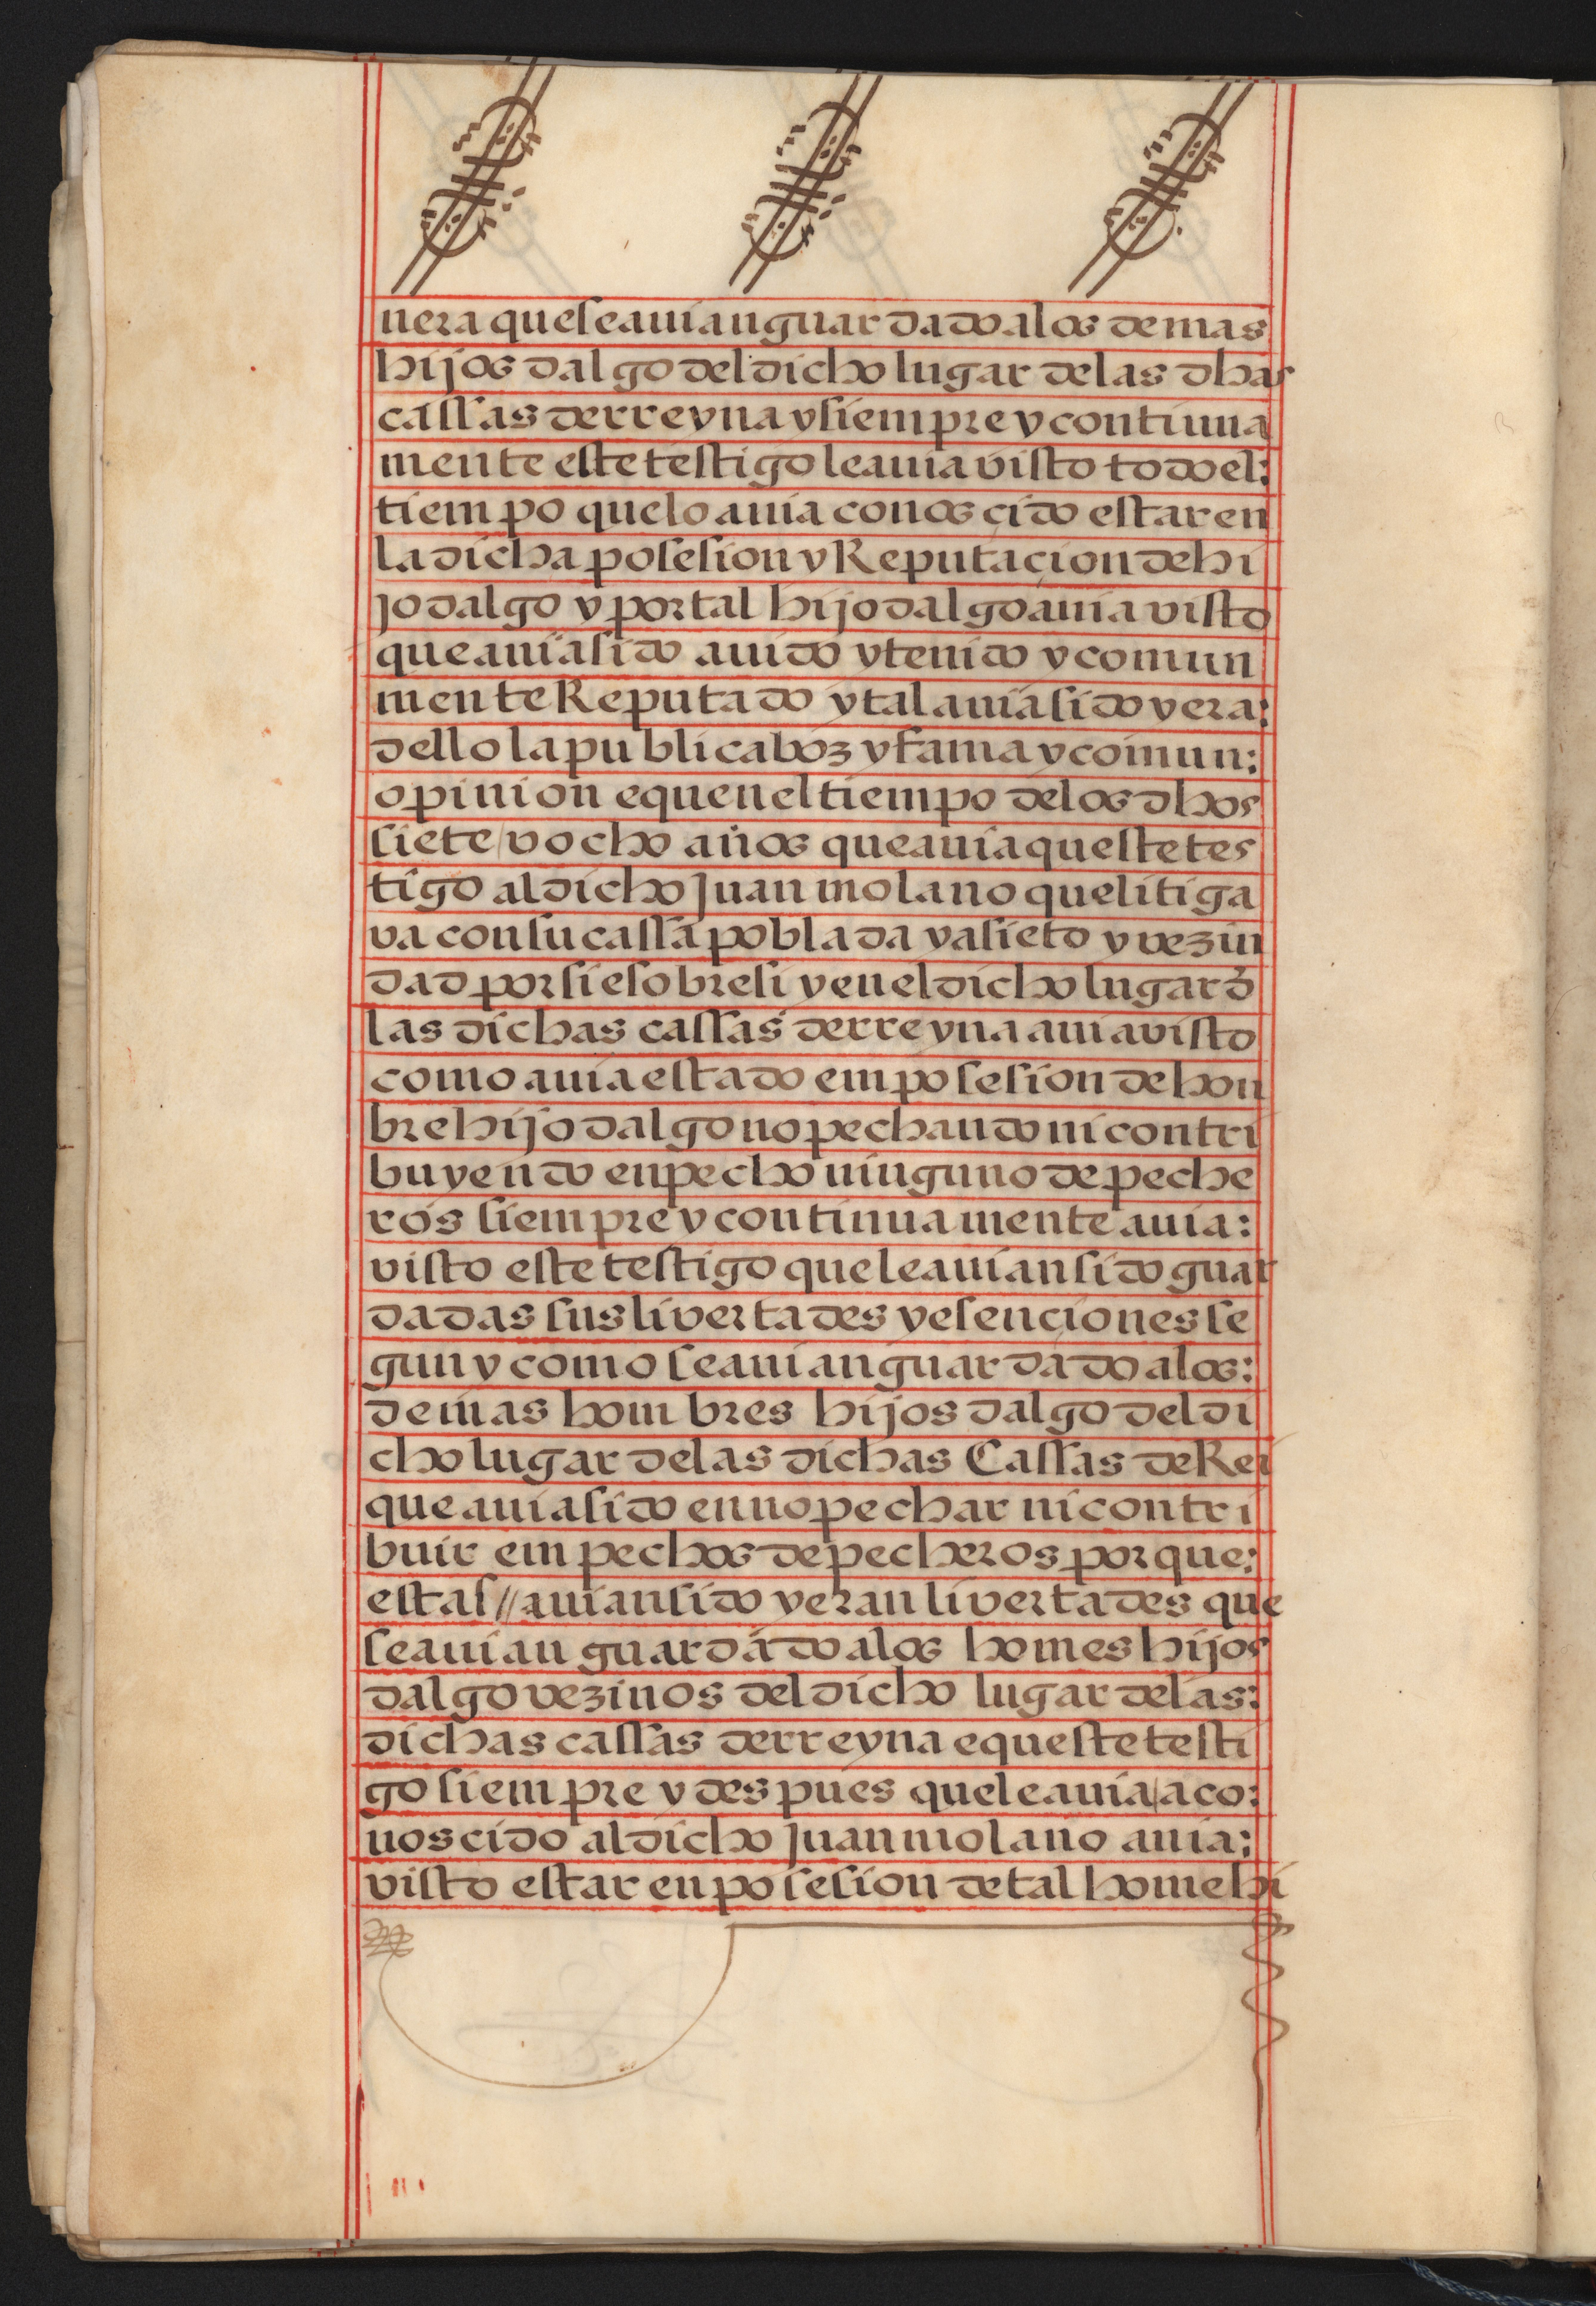 nera que se auian guardado a los demas
hijos dalgo del dicho lugar de las dhas
cassas de rreyna y siempre y continua
mente este testigo le auia visto todo el:
tiempo que lo auia conosçido estar en
la dicha posesion y Reputaçion de hi
jo dalgo y por tal hijo dalgo auia visto
que auia sido auido y tenido y comun
mente Reputado y tal auia sido y era:
dello la publica boz y fama y comun:
opinion e que en el tiempo de los dhos
siete y ocho años que auia queste tes
tigo al dicho Juan molano que litiga
va con su cassa poblada y asieto y vezin
dad por si e sobre si y en el dicho lugar d
las dichas cassas de rreyna auia visto
como auia estado em posesion de hon
bre hijo dalgo no pechando ni contri
buyendo en pecho ninguno de peche
ros siempre y continuamente auia:
visto este testigo que le auian sido guar
dadas sus livertades y esenciones se
gun y como se auian guardado a los:
demas hombres hijos dalgo del di
cho lugar de las dichas Cassas de Rei
que auia sido en no pechar ni contri
buir em pechos de pecheros por que:
estas // auian sido y eran livertades que
se auian guardado a los homes hijos
dalgo vezinos del dicho lugar de las:
dichas cassas de rreyna e queste testi
go siempre y despues que le auia a co:
noscido al dicho Juan molano auia:
visto estar en posesion de tal home hi